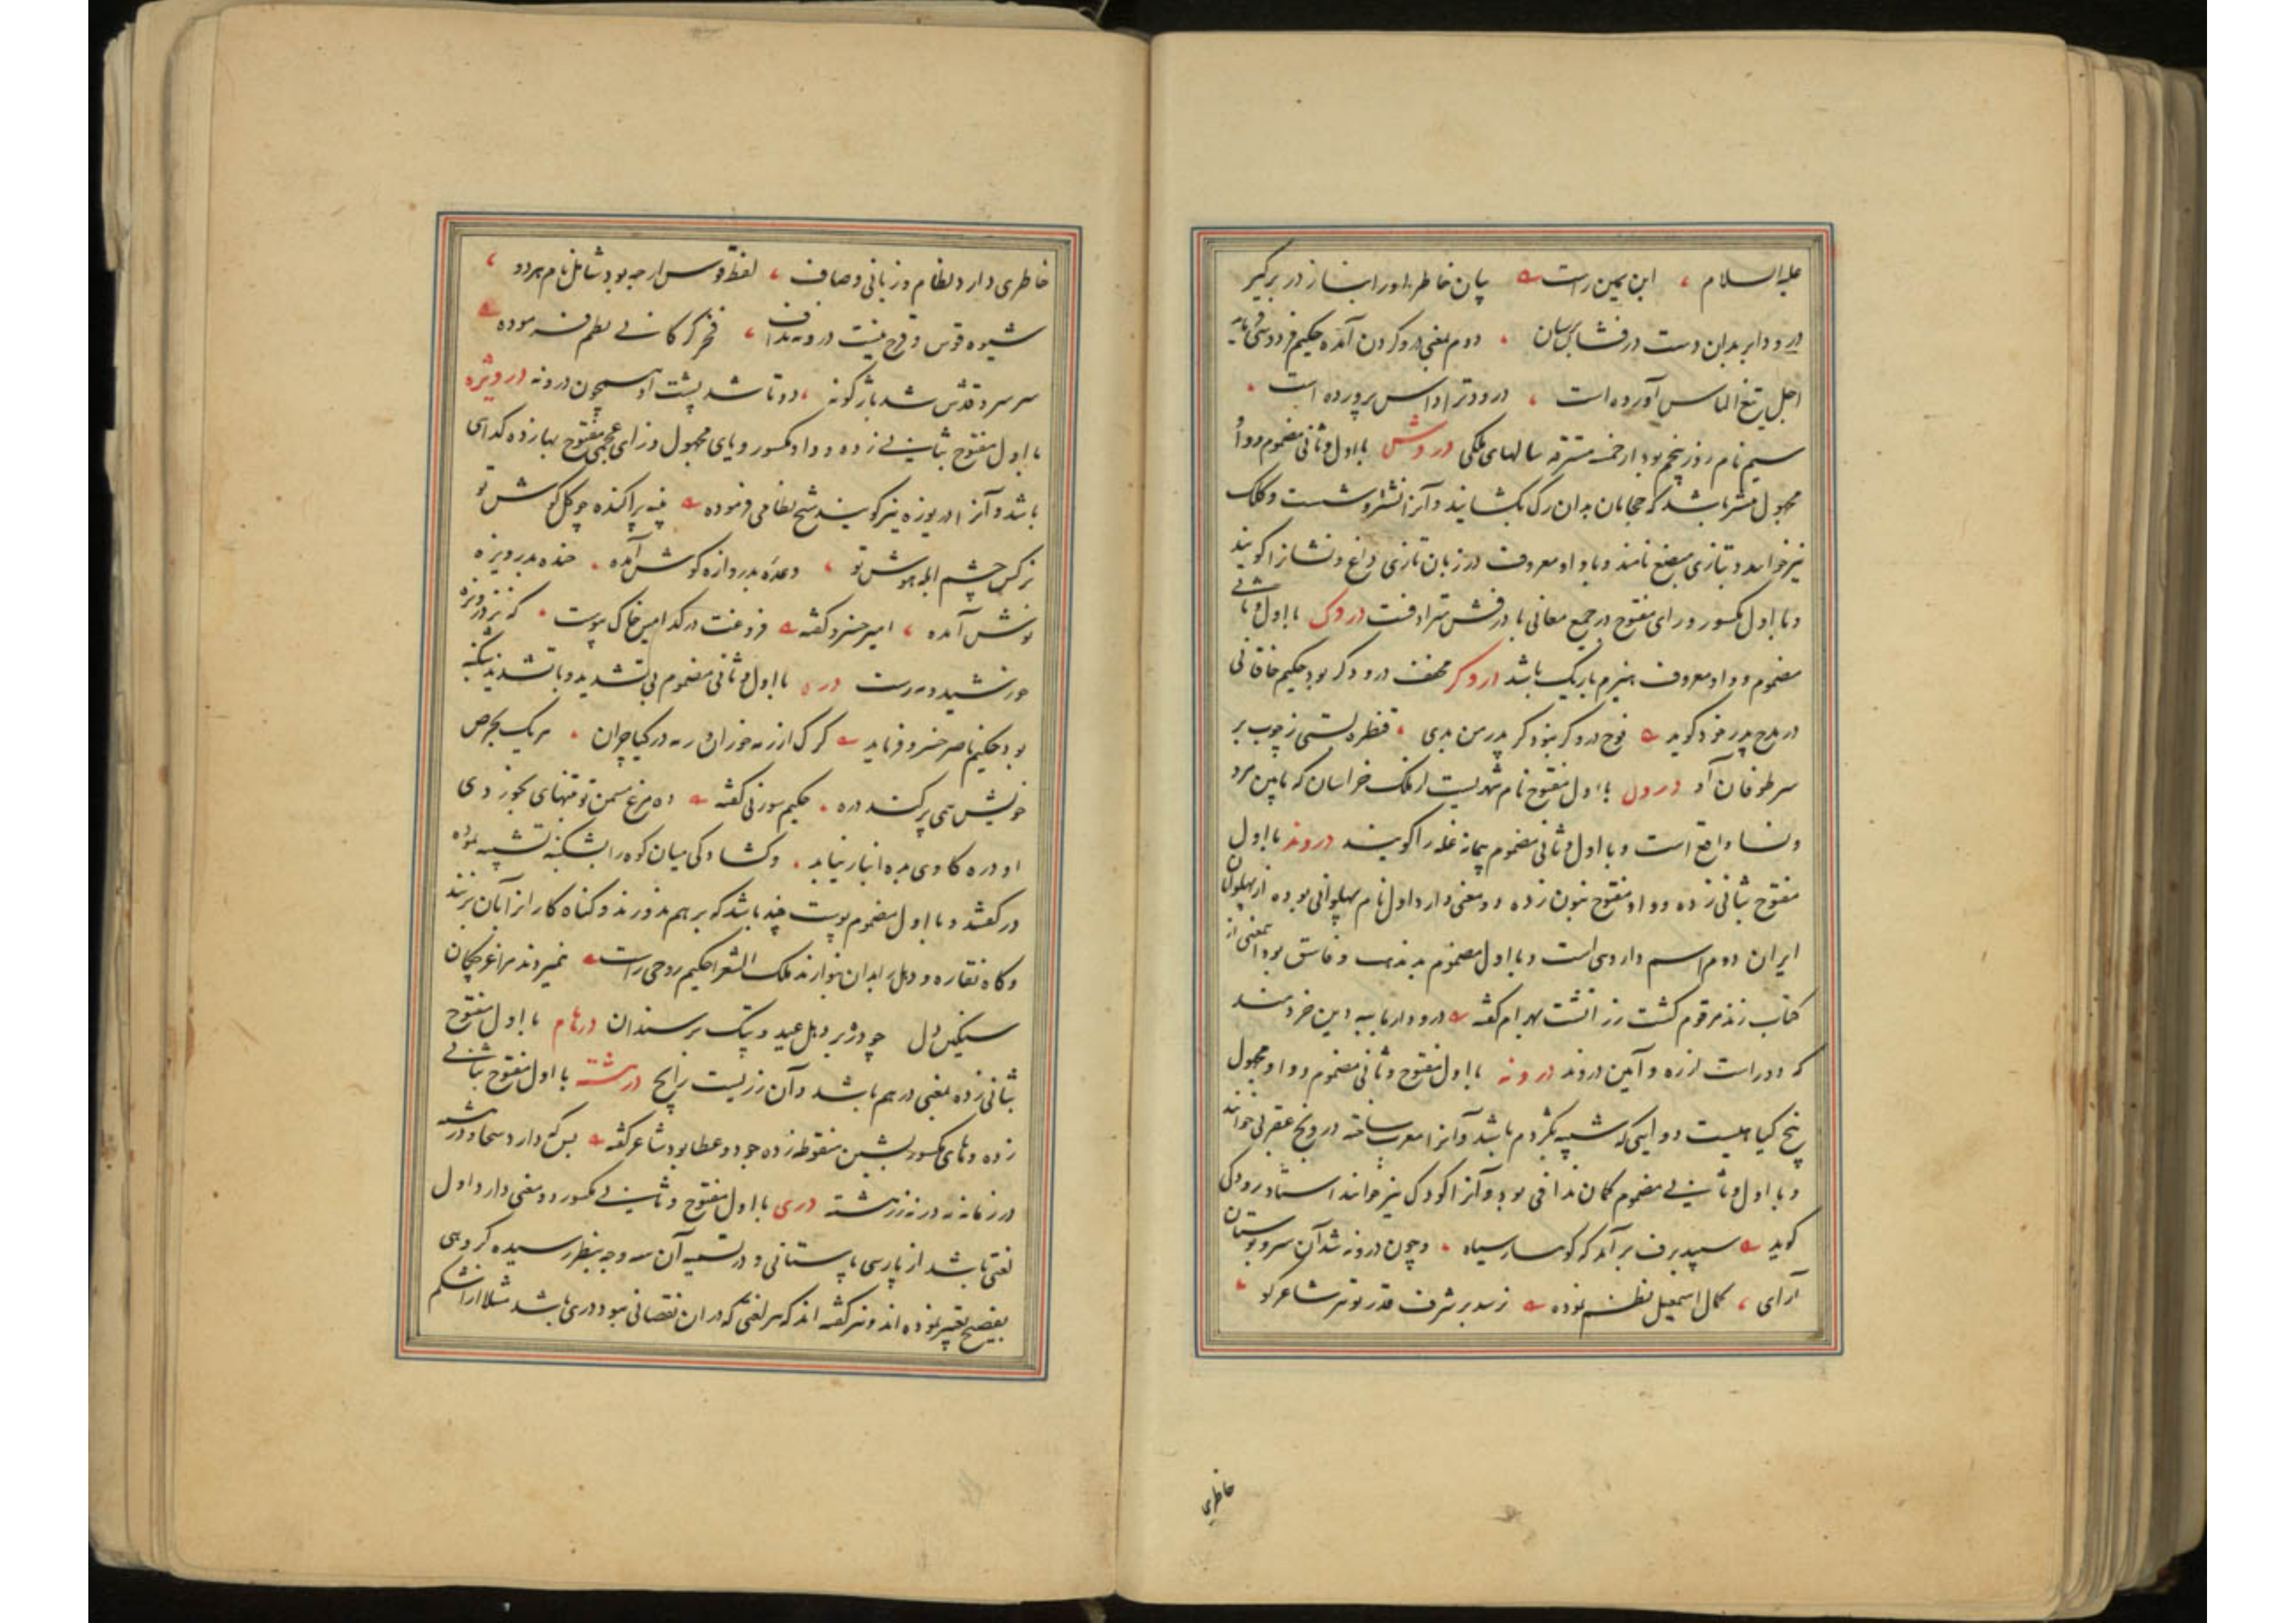 علیه السلام ، ابن یمین راست بپان خاطر او را بناز در بر گیر
درود ابر بدان دست در فشان برسان . دوم بمعنی درو کردن آمده حکیم فردوسی فرماید
اجل تیغ الماس آورده است ، درود ترا داس پرورده است .
سیم نام روز پنجم بود از خمسه مسترقه سالهای ملکی دروش با اول و ثانی مضموم و واو
مجهول نشتر باشد که حجامان بدان رگ بکشایند و آنرا نشتر و شست و کلک
نیز خوانند و بتازی مبضع نامند و با واو معروف در زبان تازی داغ و نشانرا کویند
و با اول مکسور و رای مفتوح در جمیع معانی با درفش مترادفست دروک با اول و ثانی
مضموم و واو معروف هیزم باریک باشد دروکر مخفف درودکر بود حکیم خاقانی
در مدح پدر خود کوید نوح دروکر بنود کر پدر من بدی . قنطره بستی ز چوب بر
سر طوفان او درول با اول مفتوح نام شهریست از ملک خراسان که مابین مرو
و نسا واقع است و با اول و ثانی مضموم پیمانه غله را کویند دروند با اول
مفتوح بثانی زده و واو مفتوح بنون زده دو معنی دارد اول نام پهلوانی بوده از پهلوانان
ایران دوم اسم داروی است و با اول مضموم بدمذهب و فاسق بود این معنی از
کتاب زند مرقوم کشت زرتشت بهرام کفته درود از ما ببه دین خردمند
که دوراست از ره و آیین دروند درونه با اول مفتوح و ثانی مضموم و واو مجهول
بیخ کیاهیست دوایی که شبیه بکژدم باشد و آنرا معرب ساخته درونج عقربی خوانند
و با اول و ثانی مضموم کمان ندافی بود و آنرا کودک نیز خوانند استاد رودکی
کوید سپید برف برآمد که کوهسار سیاه . و چون درونه شد آن سرو بوستان
آرای ، کمال اسمعیل نظم نموده رسد بر شرف قدر تو هر شاعر کو
خاطری
خاطری دارد نظام و زبانی وصاف ، لفظ قوس ار چه بود شامل نام هر دو ،
شیوه قوس و قزح نیست درونه نداف ، فخر کرکانی نظم فرموده
سر سرو قدش شد باژ کونه ، دو تا شد پشت او همچون درونه درویژه
با اول مفتوح بثانی زده و واو مکسور و یای مجهول و زای عجمی مفتوح بهازده کدای
باشد و آنرا دریوزه نیز کویند شیخ نظامی فرموده پنبه پراکنده چو کل کوش تو
نرکس چشم ابله هوش تو ، وعده بدروازه کوش آمده . خنده بدرویزه
نوش آمده ، امیر خسرو کفته فروغت در کدامین خاک پوست . که نز درویزه
خورشید و مه رست دره با اول و ثانی مضموم بی تشدید و با تشدید شکنبه
بود حکیم ناصر خسرو فرماید کرک ازرمه خوران و رمه در کیا چران . هر یک بحرص
خویش همی پر کند دره . حکیم سوزنی کفته ده مرغ مسمن تو تنهای بخورد دی
او دره کاو دی مه انبار نیابد . و کشادکی میان کوه را بشکنبه تشبیه نموده
در کفتند و با اول مضموم پوست چند باشد که بر هم بدوزند و کناه کار انرا بآن بزنند
و کاه نقاره و دهل را بدان نوازند ملک الشعرا حکیم روحی راست نمیزند مرا غرچکان
سنکین دل چو دره بر دهل عید و پتک بر سندان درهام با اول مفتوح
بثانی زده بمعنی درهم باشد و آن زریست رایج درهشته با اول مفتوح بثانی
زده و های مکسور بشین منقوطه زده جود و عطا بود شاعر کفته بس که دارد سخا و درهشته
در زمانه نه در نه زرهشته دری با اول مفتوح و ثانی مکسور دو معنی دارد اول
لغتی باشد از پارسی باستانی و در تسمیه آن سه وجه بنظر رسیده کروهی
بفصیح تعبیر نموده اند و نیز کفته اند که هر لغتی که در ان نقصانی نبود دری باشد مثلا اشکم